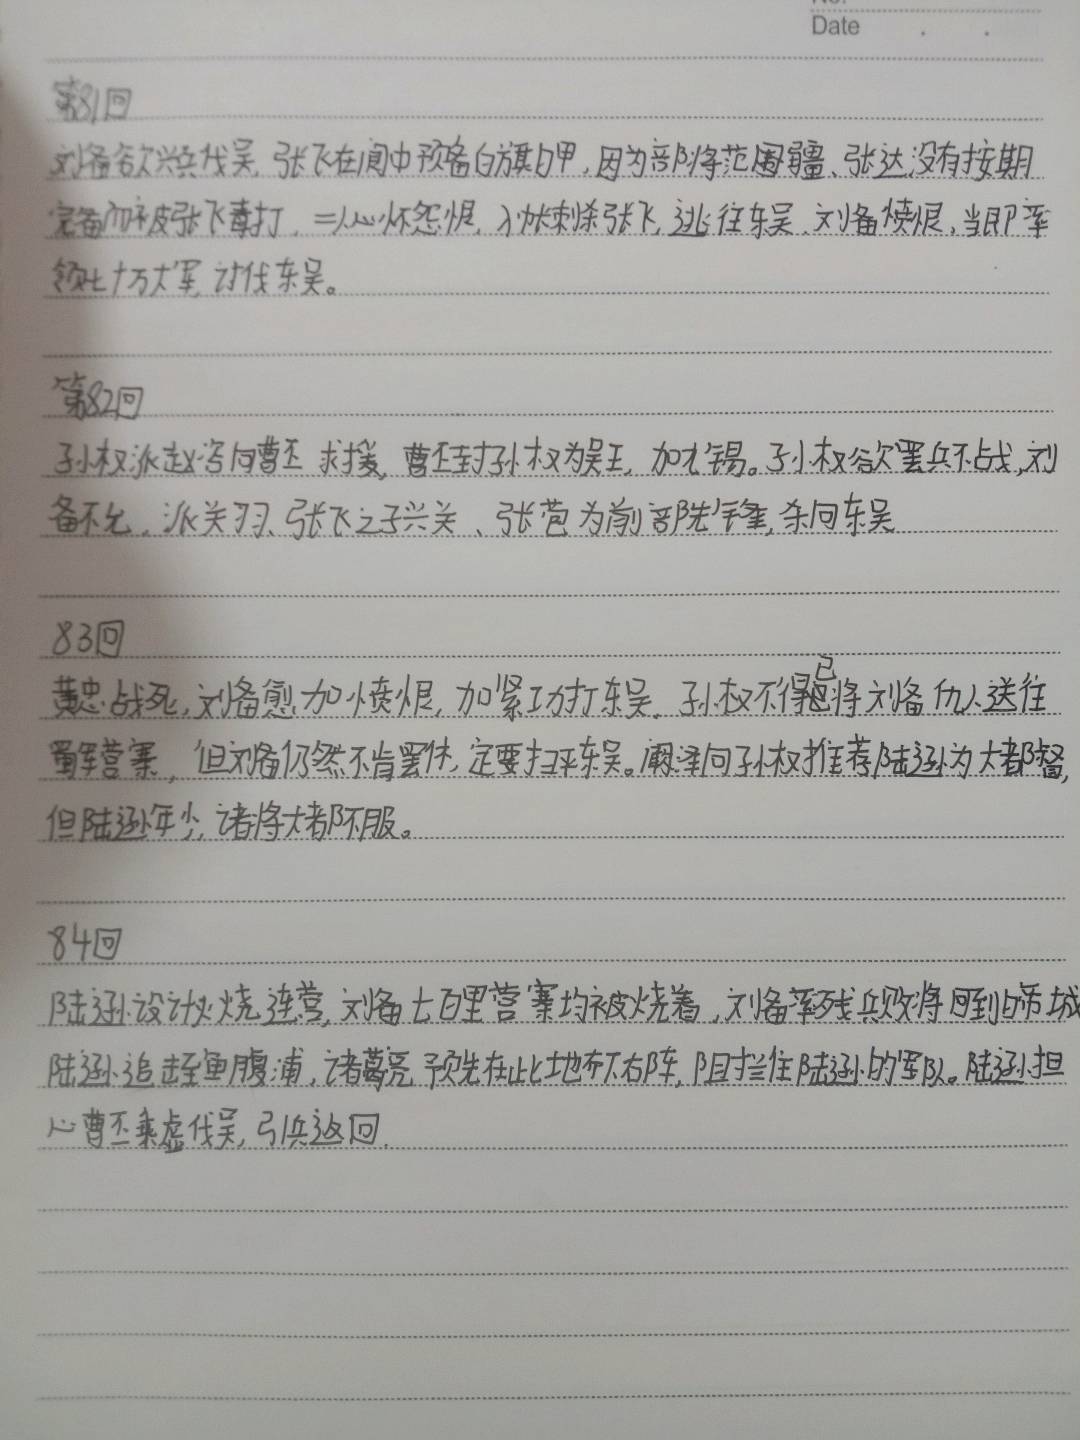 Date
第81回
刘备欲兴兵伐吴,张飞在阆中预备白旗白甲,因为部将范围疆、张达没有按期
完备而被张飞毒打,二人心怀怨恨,入帐刺杀张飞,逃往东吴,刘备愤恨,当即率
领七十万大军,讨伐东吴。
第82回
孙权派赵咨向曹丕求援,曹丕封孙权为吴王,加九锡。孙权欲罢兵不战,刘
备不允,派关羽、张飞之子兴关、张苞为前部先锋,杀向东吴
83回
黄忠战死,刘备愈加愤恨,加紧功打东吴。孙权不得已将刘备仇人送往
蜀军营寨,但刘备仍然不肯罢休,定要扫平东吴。阚泽向孙权推荐陆逊为大都督,
但陆逊年少,诸将大都不服。
84回
陆逊设计火烧连营,刘备七百里营寨均被烧着,刘备率残兵败将回到白帝城
陆逊追击至鱼腹浦,诸葛亮预先在此地布下石阵,阻拦住陆逊的军队。陆逊担
心曹丕乘虚伐吴,引兵返回.